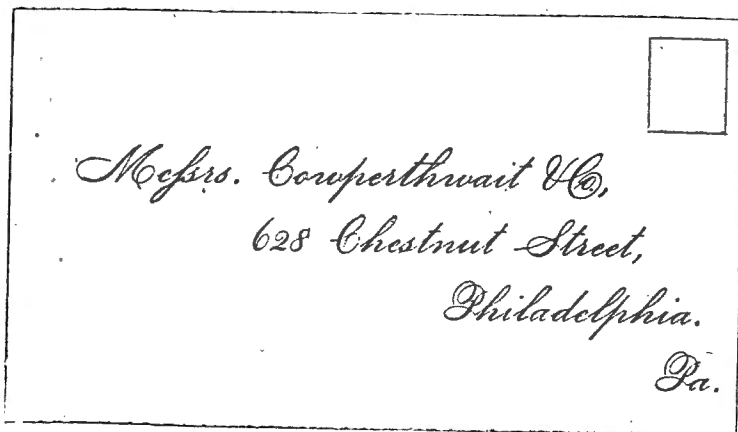 Messrs. Cowperthwait & Co,
628 Chestnut Street,
Philadelphia.
Pa.